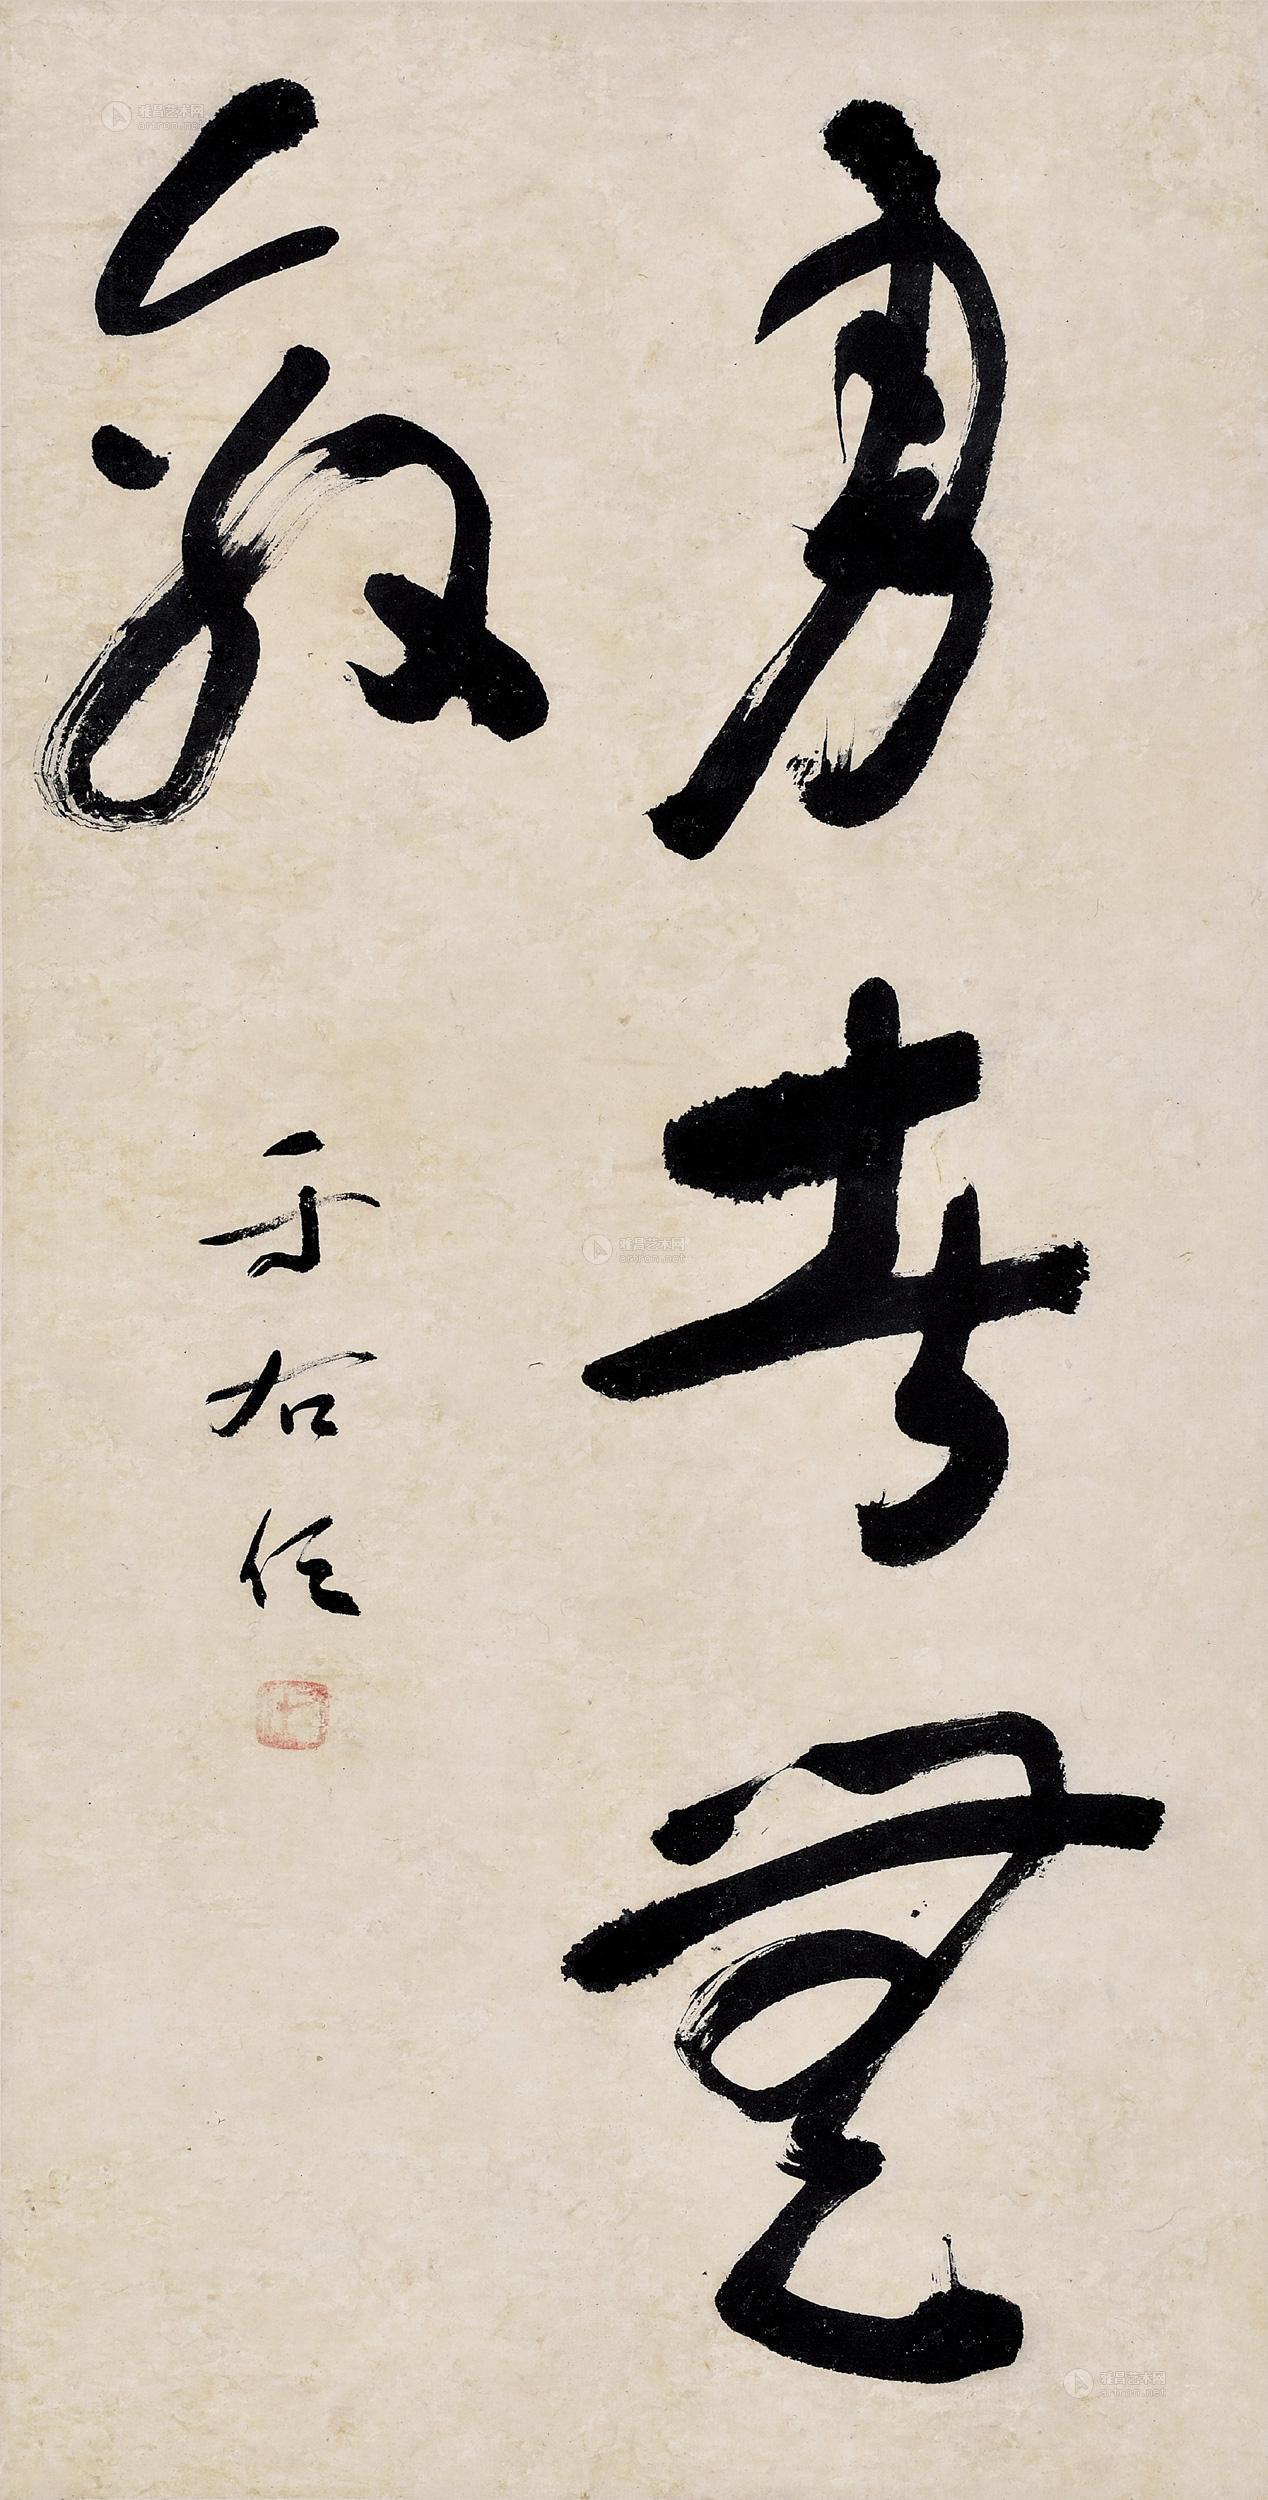 勇者無
敵
于右任
雅昌艺术网
artron.net
雅昌艺术网
artron.net
雅昌艺术网
artron.net